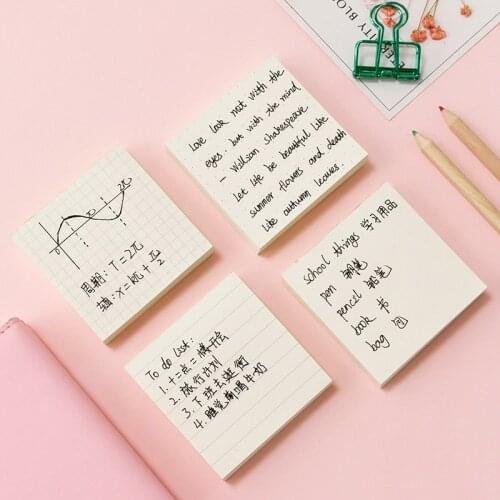 Love look not with the
eyes, but with the mind
- William Shakespeare
Let life be beautiful like
summer flowers and death
like autumn leaves.
π
2π
0
周期: T=2π
轴: x=kπ+π/2
school things 学习用品
pen 钢笔
pencil 铅笔
book 书
bag 包
To do List:
1. 十二点二楼开会
2. 旅行计划
3. 下班去逛街
4. 睡觉前喝牛奶